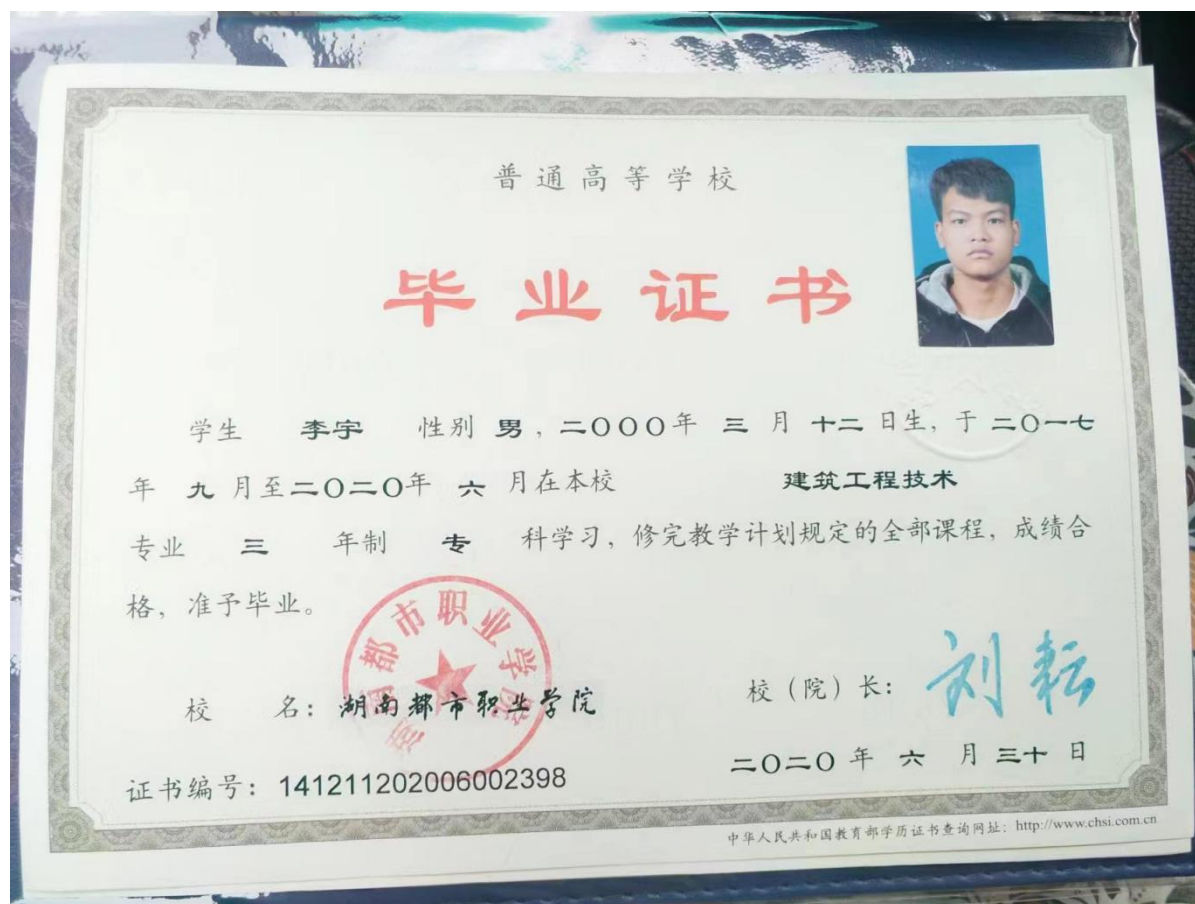 普通高等学校
毕业证书
学生 李宇 性别 男，二〇〇〇年 三 月 十二 日生，于 二〇一七
年 九 月至二〇二〇年 六 月在本校 建筑工程技术
专业 三 年制 专 科学习，修完教学计划规定的全部课程，成绩合
格，准予毕业。
湖南都市职业学院
校 名：湖南都市职业学院
校（院）长：刘耘
证书编号：141211202006002398
二〇二〇 年 六 月 三十 日
中华人民共和国教育部学历证书查询网址：http://www.chsi.com.cn